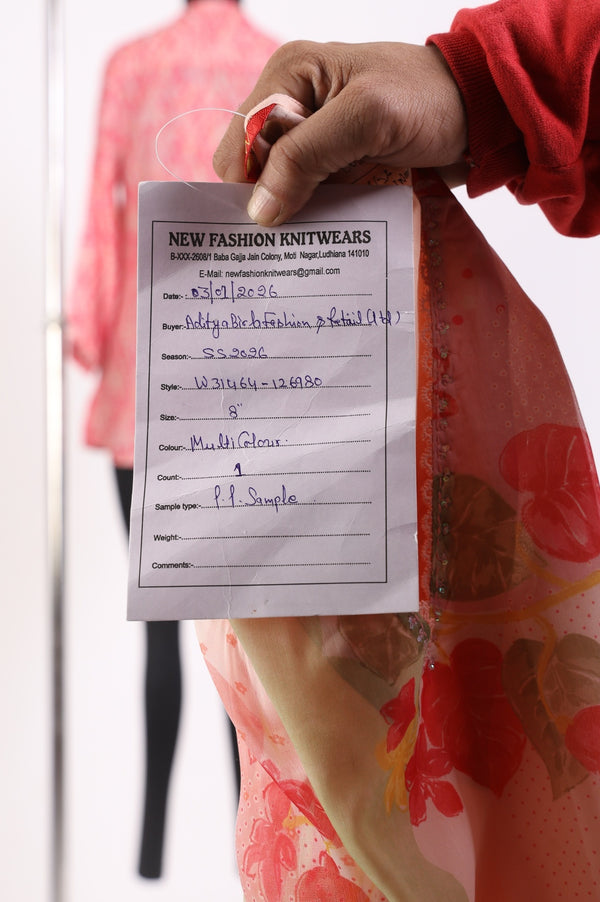 NEW FASHION KNITWEARS
B-XXX-2608/1 Baba Gajja Jain Colony, Moti Nagar,Ludhiana 141010
E-Mail: newfashionknitwears@gmail.com
Date:- 03/01/2026
Buyer:- Aditya Birla Fashion & Retail (Ltd)
Season:- SS2026
Style:- W31464-126980
Size:- 8"
Colour:- Multi Colour.
Count:- 1
Sample type:- P.P. Sample
Weight:-
Comments:-